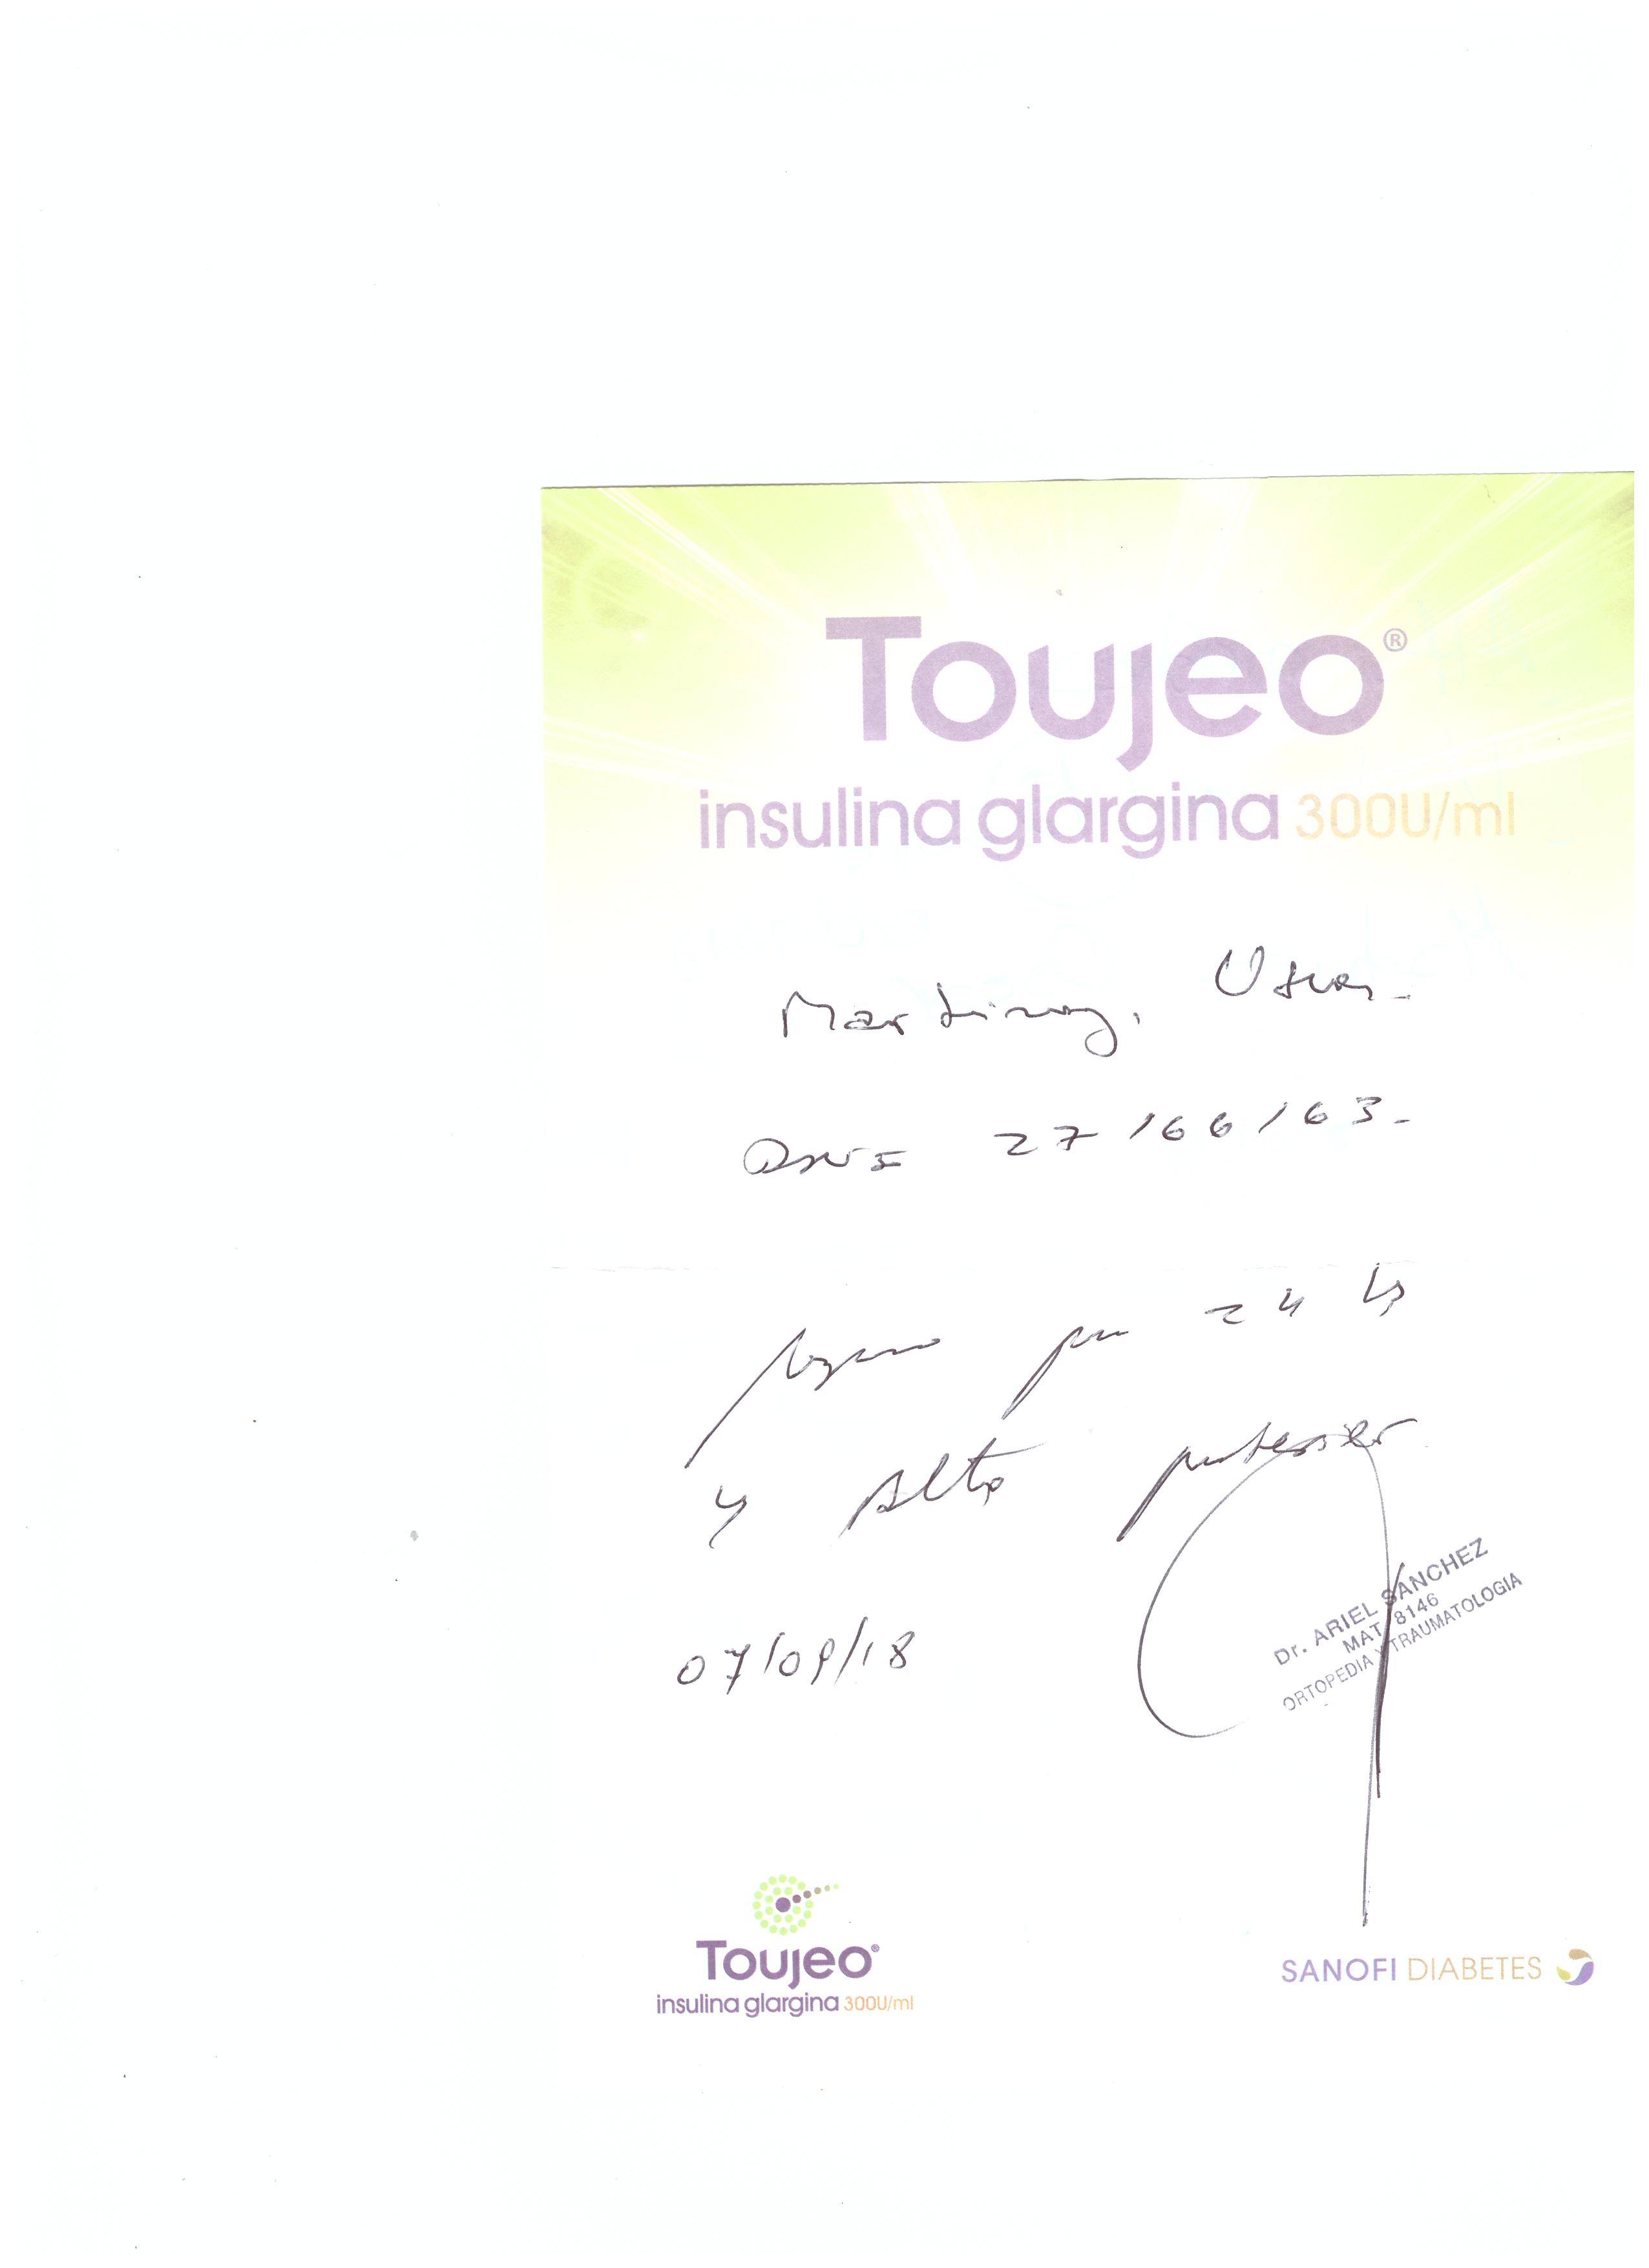 Toujeo®
insulina glargina 300U/ml
Martinez, Oscar
27/66/63-
reposo por 24 hs
y Alta posterior
07/09/18
Dr. ARIEL SANCHEZ
MAT. 8146
ORTOPEDIA Y TRAUMATOLOGIA
Toujeo®
insulina glargina 300U/ml
SANOFI DIABETES